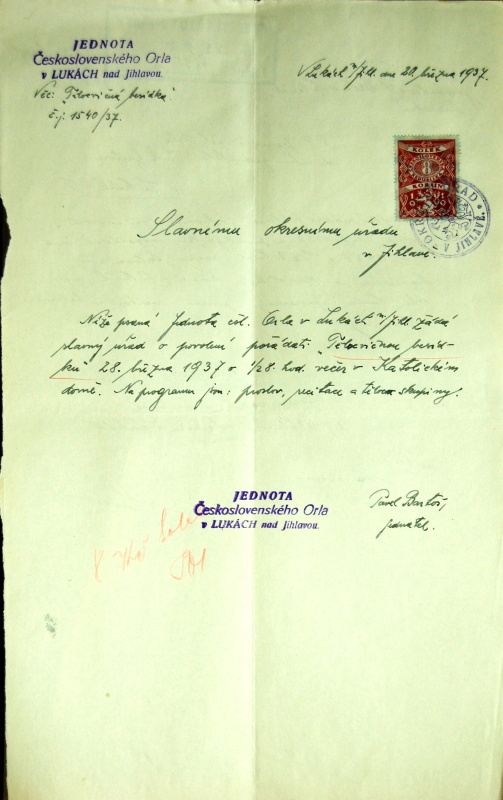 JEDNOTA
Československého Orla
v LUKÁCH nad Jihlavou.
Věc: "Tělocvičná besídka"
č.j. 1540/37.
V Lukách n/Jihl. dne 22. března 1937.
KOLEK
8
KORUN
Slavnému okresnímu úřadu
v Jihlavě.
Níže psaná Jednota čsl. Orla v Lukách n/Jihl. žádá
slavný úřad o povolení pořádati "Tělocvičnou besíd-
ku" 28. března 1937 o 1/28. hod. večer v Katolickém
domě. Na programu jsou: proslov, recitace a tělocv. skupiny.
JEDNOTA
Československého Orla
v LUKÁCH nad Jihlavou.
Pavel Bartoš,
jednatel.